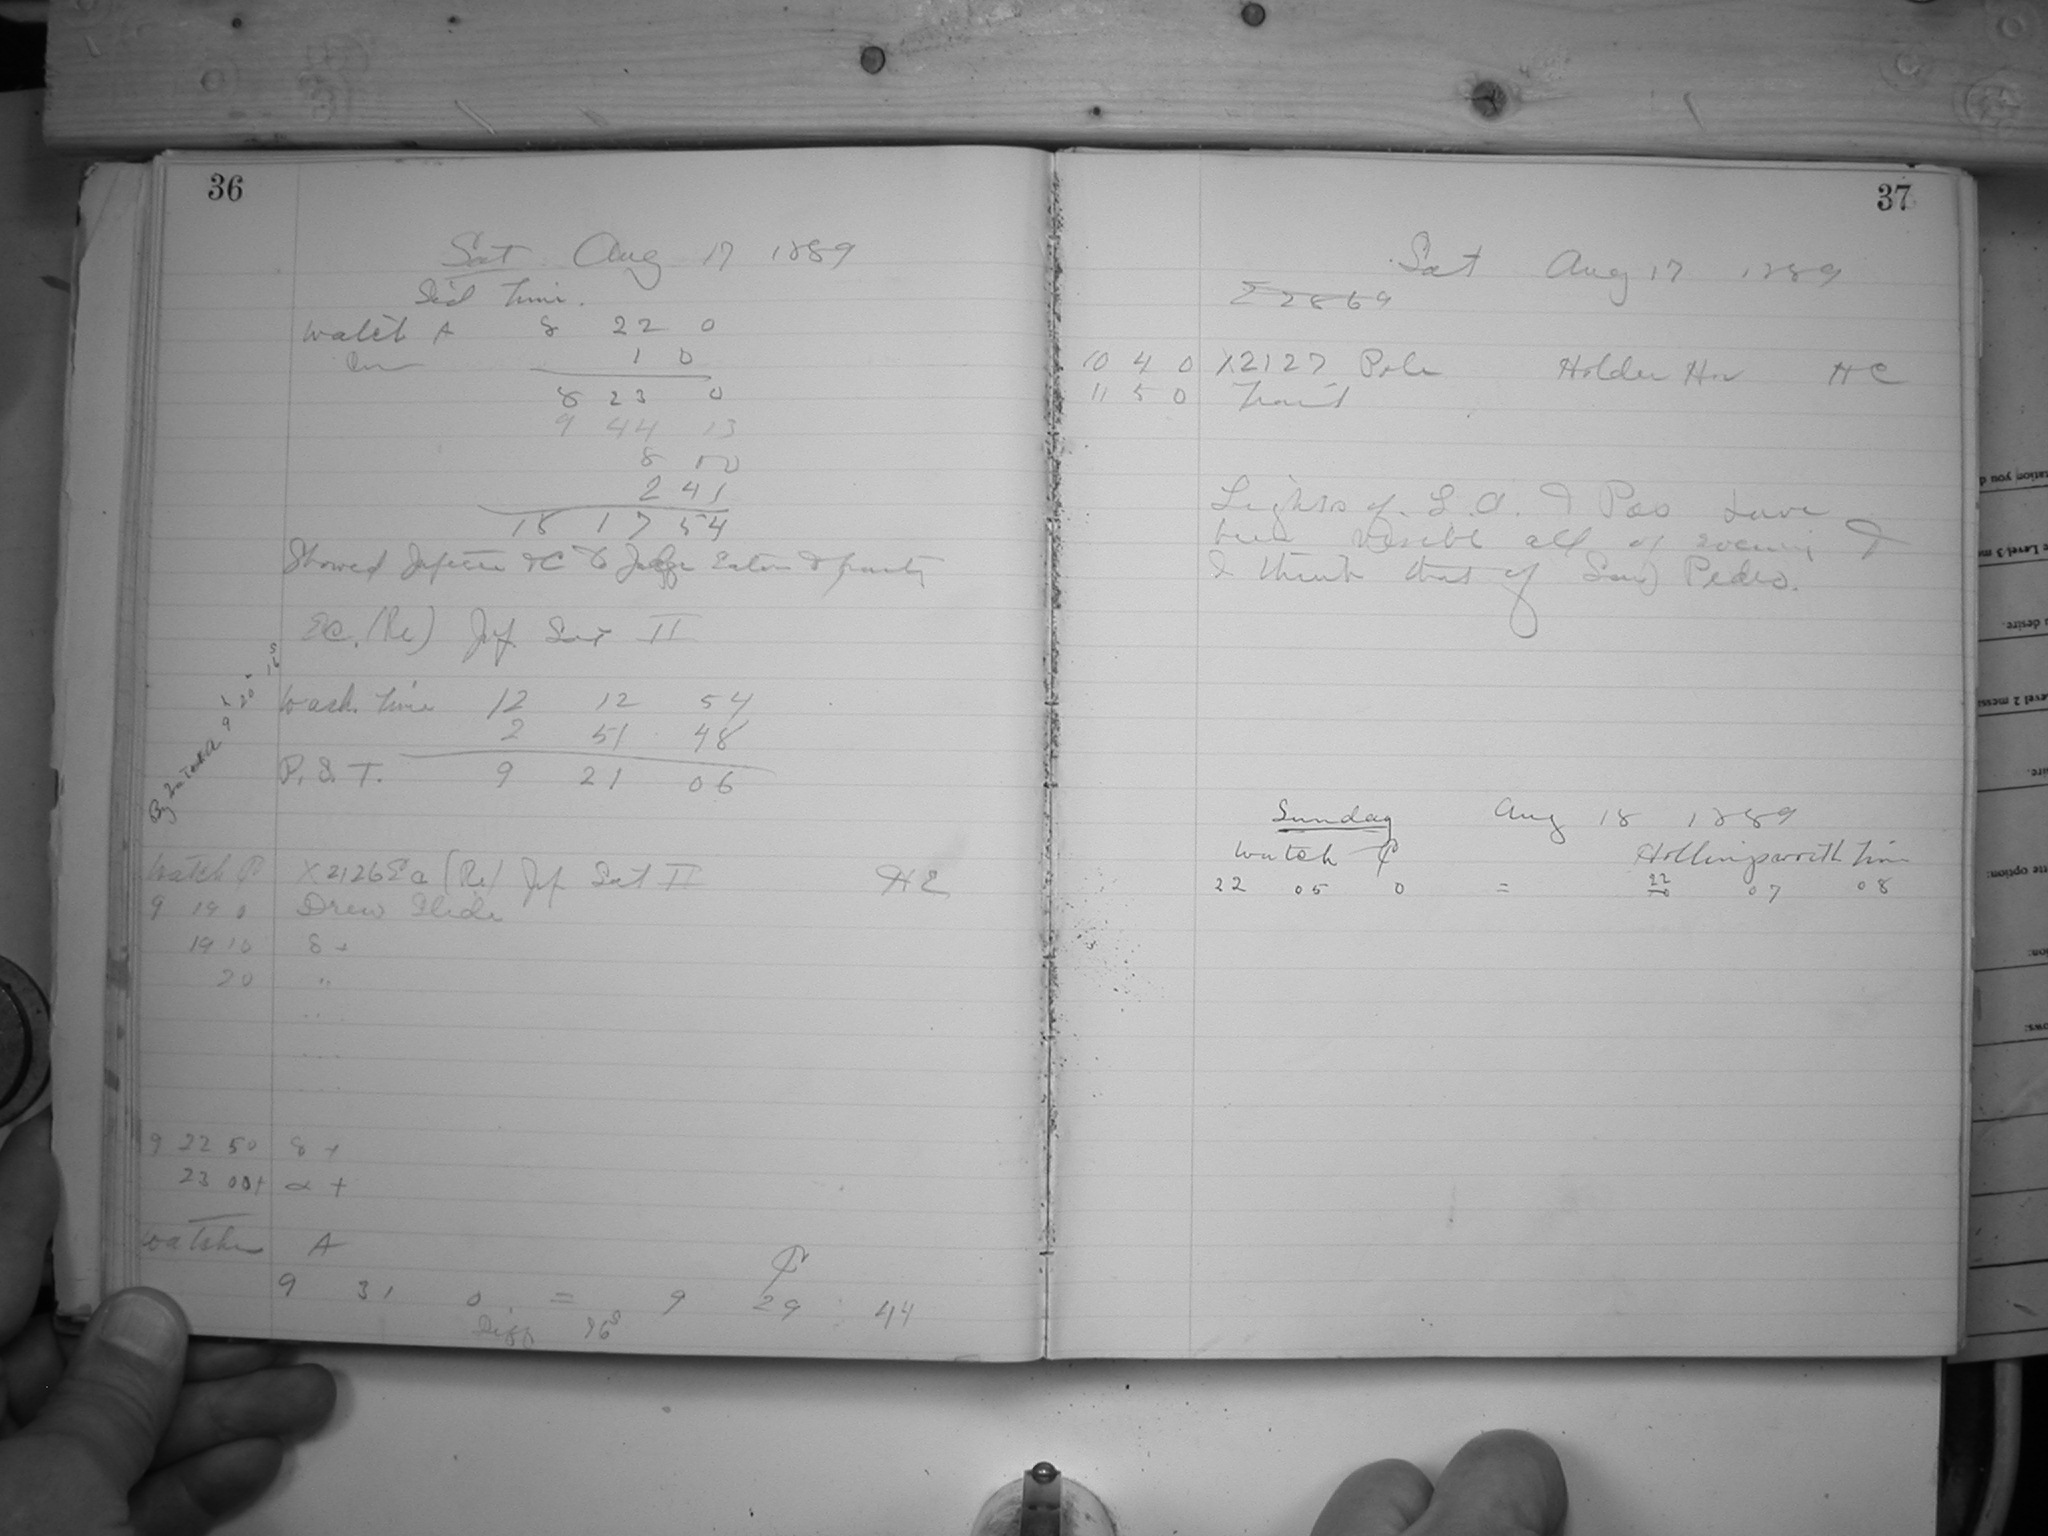 36
Sat Aug 17 1889
Sid Time.
Watch A 8 22 0
1 0
8 23 0
9 44 13
8 10
2 41
18 17 54
Showed Jupiter &C to Judge Eaton & party
Ec. (Re) Jup. Sat II
Wash. Time 12 12 54
2 51 48
P. S. T. 9 21 06
9 20 16
Watch C X2126 Ec (Re) Jup Sat II HE
9 19 0 Drew Slide
19 10 8 +
20 "
9 22 50 8 +
23 00+ α +
Watches A C
9 31 0 = 9 29 44
Diff 76s
37
Sat Aug 17 1889
Σ 2869
10 4 0 X2127 Pole Holder Hor HC
11 5 0 Trail
Lights of L.A. & Pas have
been visible all of evening &
I think that of San Pedro.
Sunday Aug 18 1889
Watch C Hollingsworth Time
22 05 0 = 22 07 08